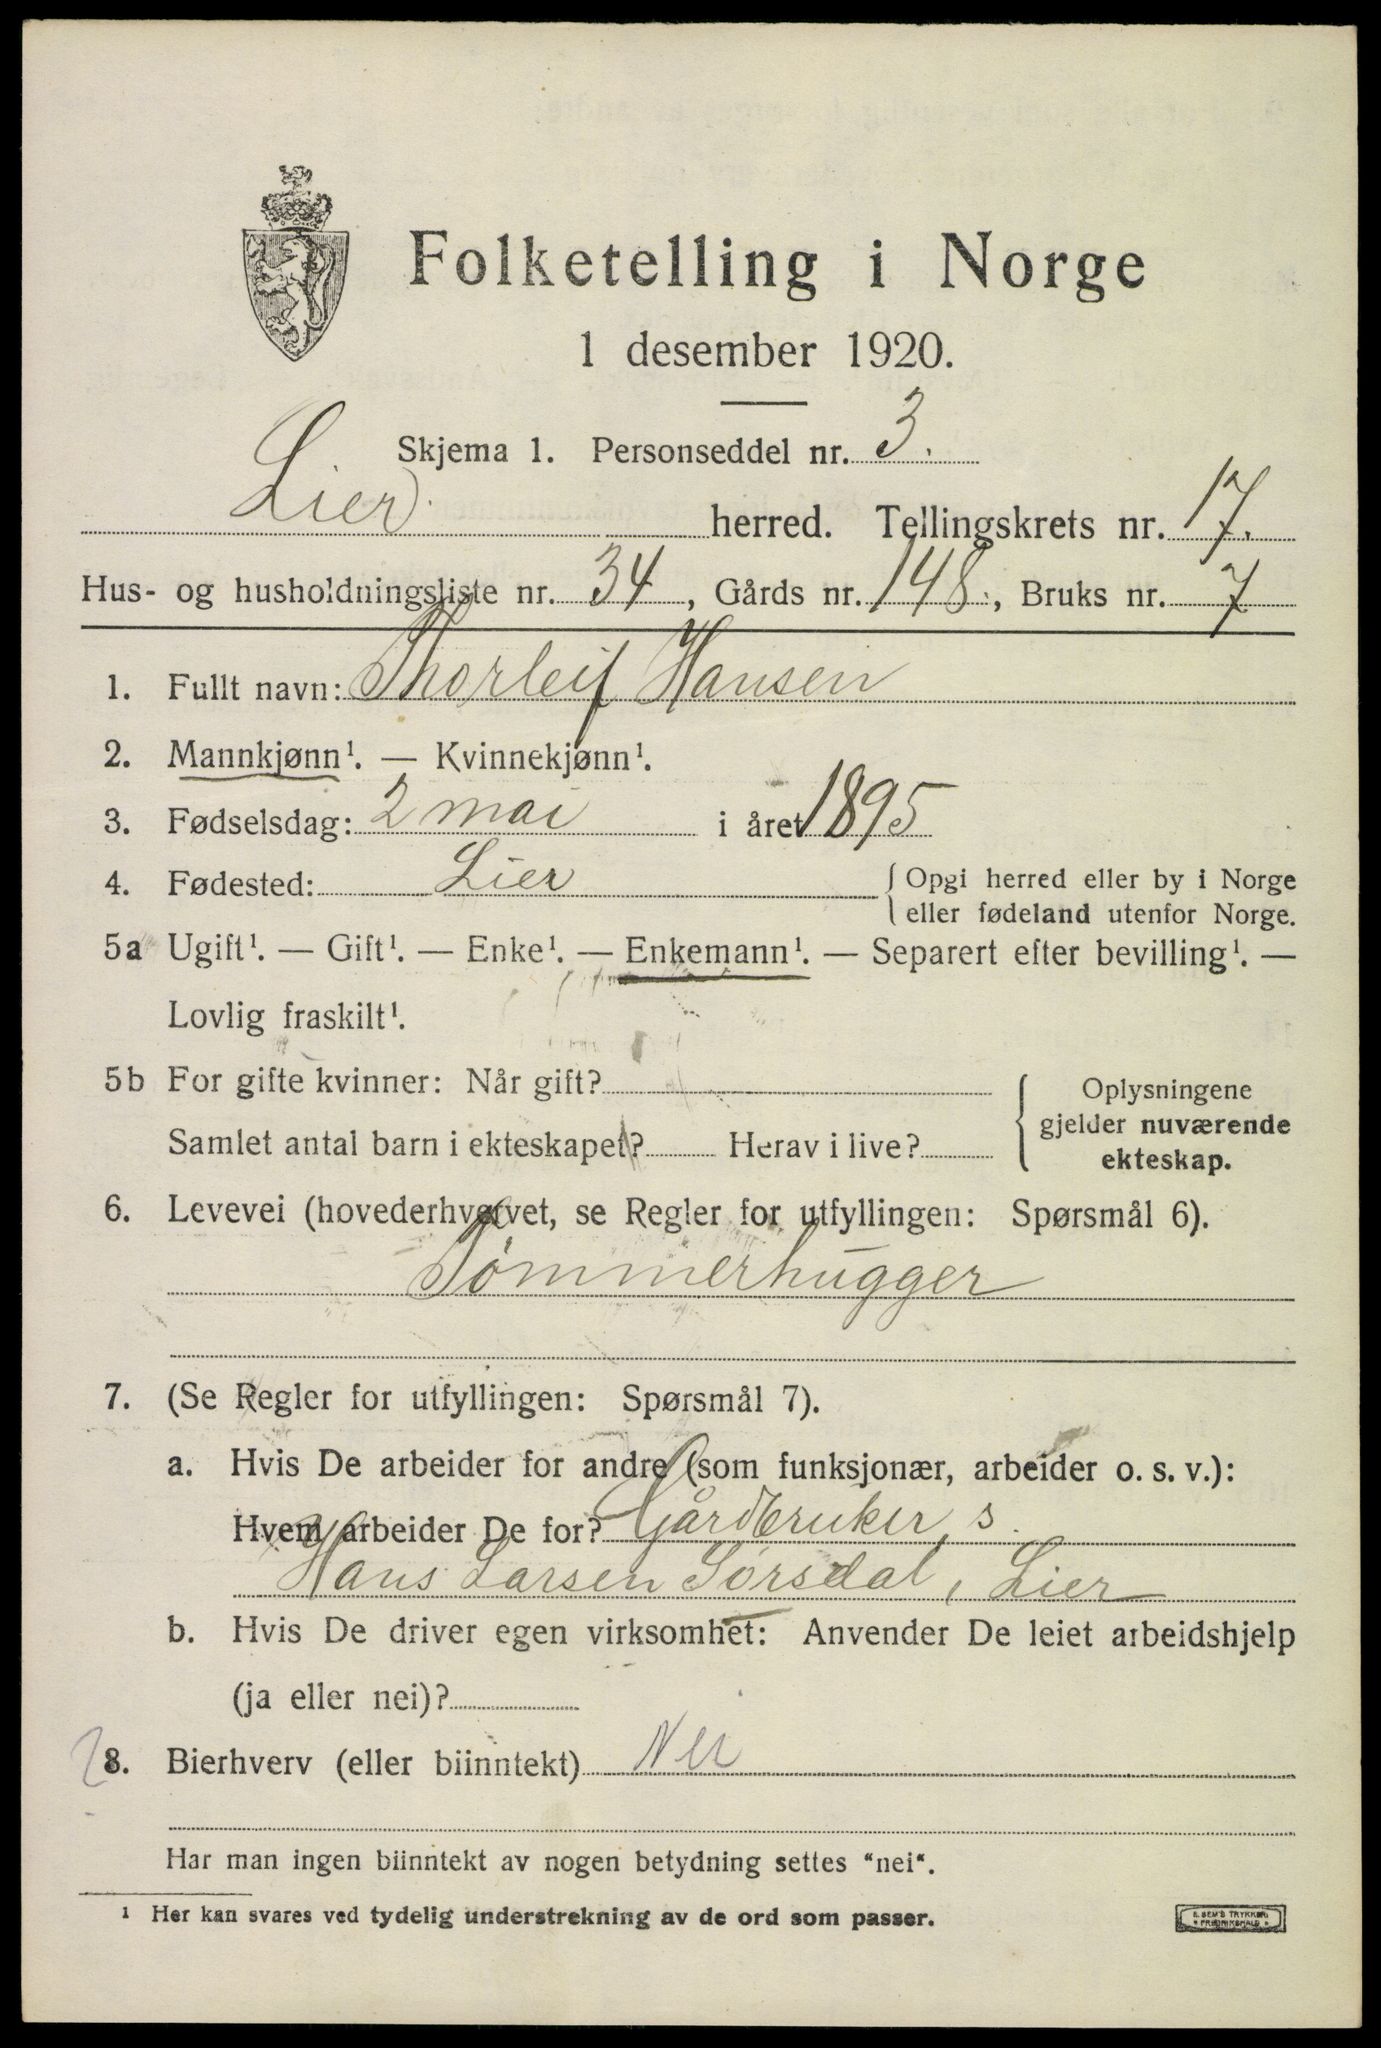 Folketelling i Norge
1 desember 1920.
Skjema 1. Personseddel nr. 3.
Lier herred. Tellingskrets nr. 17.
Hus- og husholdningsliste nr. 34, Gårds nr. 148., Bruks nr. 7
1. Fullt navn: Thorleif Hansen
2. Mannkjønn¹. — Kvinnekjønn¹.
3. Fødselsdag: 2 mai i året 1895
4. Fødested: Lier { Opgi herred eller by i Norge
eller fødeland utenfor Norge.
5a Ugift¹. — Gift¹. — Enke¹. — Enkemann¹. — Separert efter bevilling¹. —
Lovlig fraskilt¹.
5b For gifte kvinner: Når gift?
Samlet antal barn i ekteskapet? Herav i live?
{ Oplysningene
gjelder nuværende
ekteskap.
6. Levevei (hovederhvervet, se Regler for utfyllingen: Spørsmål 6).
Tømmerhugger
7. (Se Regler for utfyllingen: Spørsmål 7).
a. Hvis De arbeider for andre (som funksjonær, arbeider o. s. v.):
Hvem arbeider De for? Gårdbruker, s
Hans Larsen Sørsdal, Lier
b. Hvis De driver egen virksomhet: Anvender De leiet arbeidshjelp
(ja eller nei)?
8. Bierhverv (eller biinntekt) Nei
Har man ingen biinntekt av nogen betydning settes "nei".
¹ Her kan svares ved tydelig understrekning av de ord som passer.
E. SEM'S TRYKKERI
FREDRIKSHALD